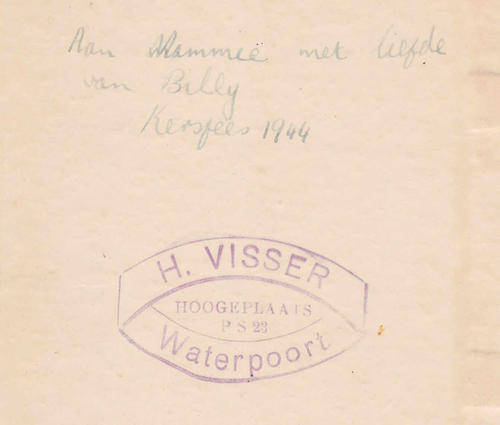 Aan Mammie met liefde
van Billy
Kersfees 1944
H. VISSER
HOOGEPLAATS
P S 23
Waterpoort